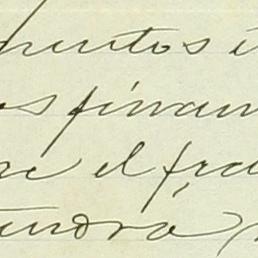 mentos i
os finan
re el fra
tendrá